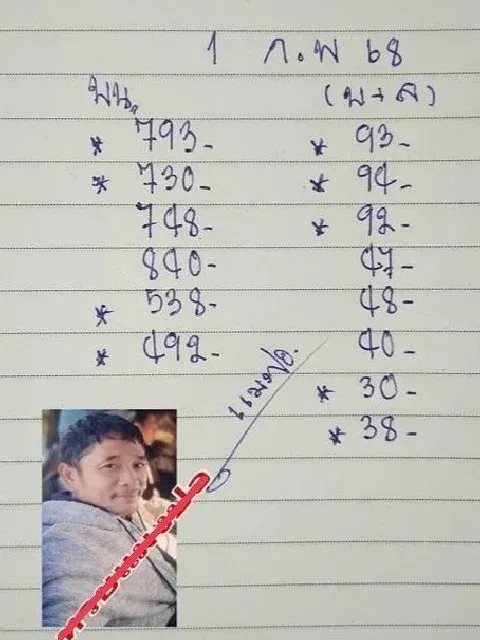 1 ก.พ 68
บน.
(บ+ล)
* 793-
* 730-
748-
840-
* 538-
* 492-
* 93-
* 94-
* 92-
47-
48-
40-
* 30-
* 38-